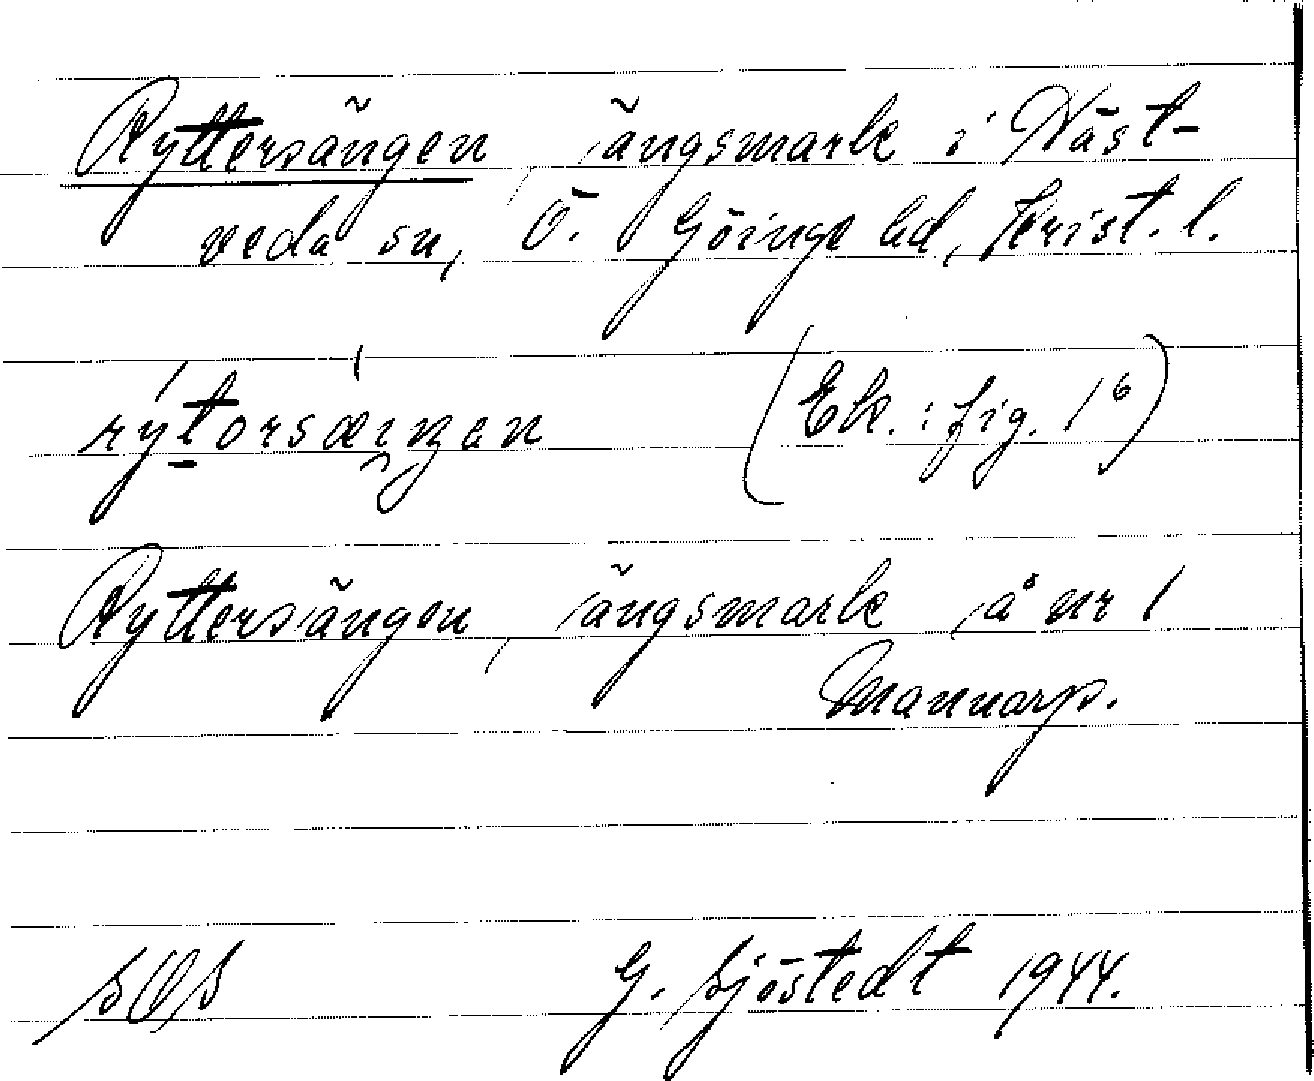 Ryttersängen, ängsmark i Väst-
veda sn, Ö. Göinge hd, Krist. l.
rýtorsæiŋən (Ek. : fig. 1⁶)
Ryttersängen, ängsmark å nr 1
Mannarp.
SOS G. Sjöstedt 1944.